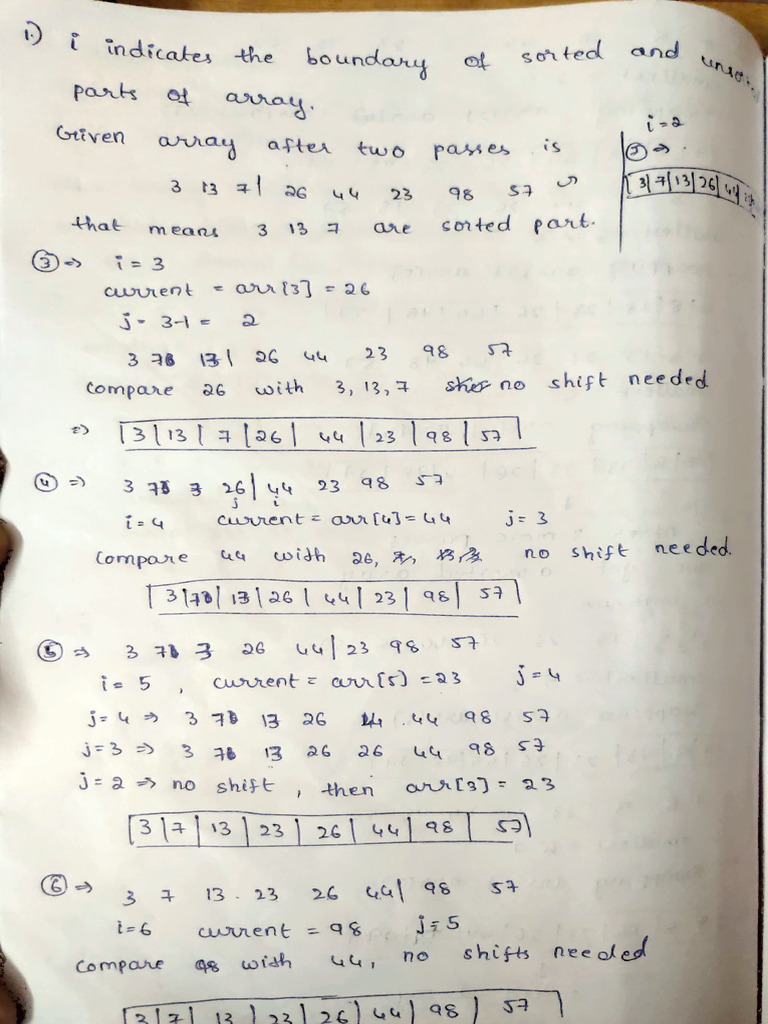 1.) i indicates the boundary of sorted and
parts of array.
Given array after two passes is
3 13 7 | 26 44 23 98 57
that means 3 13 7 are sorted part.
i=2
② ⇒
3|7|13|26|44
③ ⇒ i = 3
current = arr[3] = 26
j = 3-1 = 2
3 7 13| 26 44 23 98 57
compare 26 with 3, 13, 7 no shift needed
⇒ |3|13|7|26|44|23|98|57|
④ ⇒ 3 7 26|44 23 98 57
j i
i=4 current = arr[4]=44 j=3
compare 44 with 26, no shift needed.
|3|7|13|26|44|23|98|57|
⑤ ⇒ 3 7 26 44|23 98 57
i= 5 , current = arr[5] = 23 j=4
j=4 ⇒ 3 7 13 26 44 44 98 57
j=3 ⇒ 3 7 13 26 26 44 98 57
j=2 ⇒ no shift , then arr[3] = 23
|3|7|13|23|26|44|98|57|
⑥ ⇒ 3 7 13 23 26 44| 98 57
i=6 current = 98 j=5
compare 98 with 44, no shifts needed
|3|7|13|23|26|44|98|57|